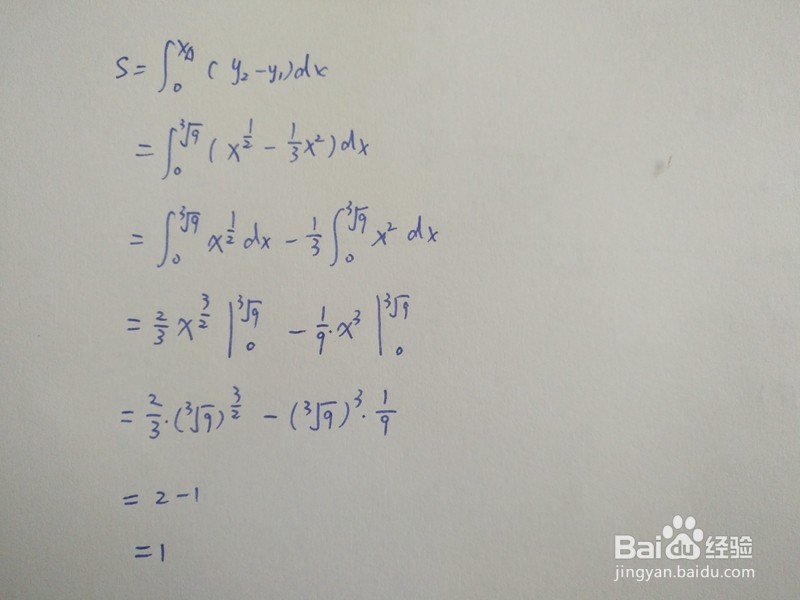 S = ∫₀^{x_A} (y₂ - y₁) dx
= ∫₀^{³√9} (x^{1/2} - 1/3 x²) dx
= ∫₀^{³√9} x^{1/2} dx - 1/3 ∫₀^{³√9} x² dx
= 2/3 x^{3/2} |₀^{³√9} - 1/9 · x³ |₀^{³√9}
= 2/3 · (³√9)^{3/2} - (³√9)³ · 1/9
= 2 - 1
= 1
Baidu经验
jingyan.baidu.com